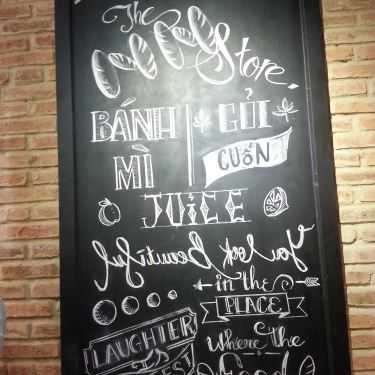 The
Store.
BÁNH
MÌ
GỎI
CUỐN
JUICE
You look Beautiful
in the
PLACE
where the
Good
LAUGHTER
IS